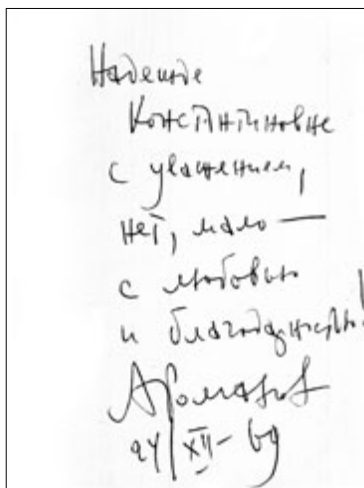 Надежде
Константиновне
с уважением,
нет, мало —
с любовью
и благодарностью!
А Романов
24/XII-69